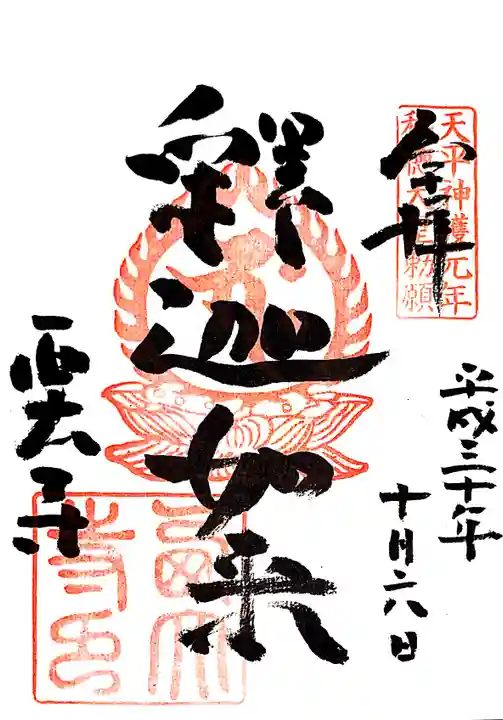 奉拝
天平神護元年
称徳天皇勅願
平成三十年
十月六日
釋迦如来
西大寺
西大寺印